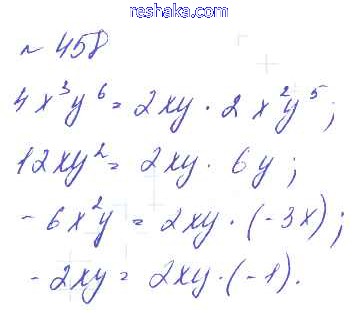 reshaka.com
~ 458
4x³y⁶ = 2xy · 2x²y⁵;
12xy² = 2xy · 6y;
-6x²y = 2xy · (-3x);
-2xy = 2xy · (-1).